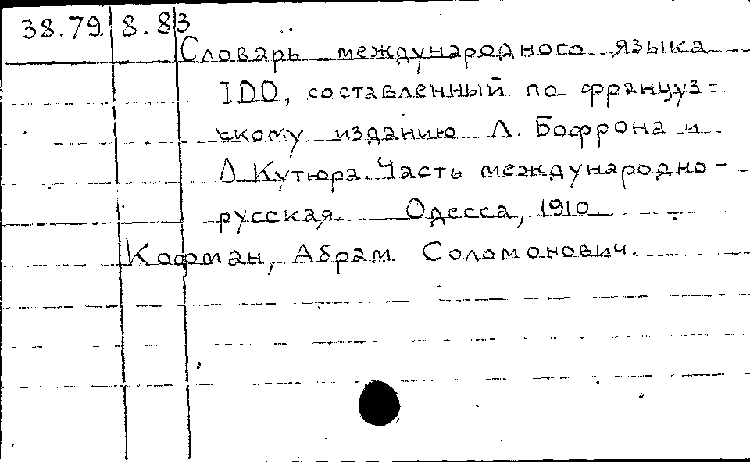 38.79 8.83
Словарь международного языка
IDO, составленный по француз=
скому изданию Л. Бофрона и
Л Кутюра. Часть международно-
русская. Одесса, 1910
Кофман, Абрам Соломонович.